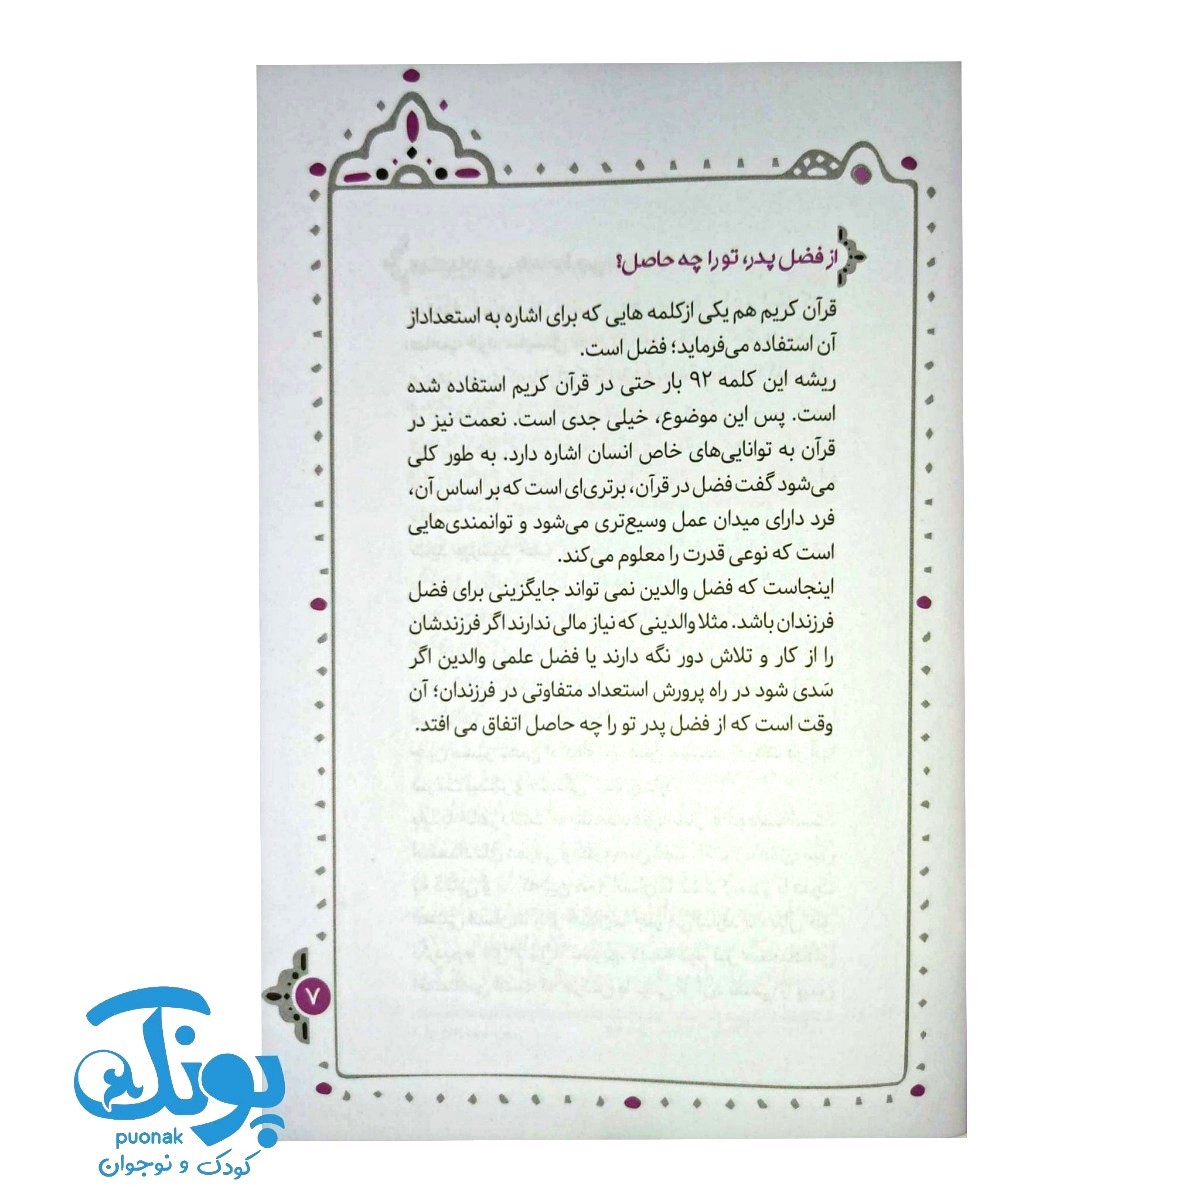 از فضل پدر، تو را چه حاصل؟
قرآن کریم هم یکی ازکلمه هایی که برای اشاره به استعداداز
آن استفاده می‌فرماید؛ فضل است.
ریشه این کلمه ۹۲ بار حتی در قرآن کریم استفاده شده
است. پس این موضوع، خیلی جدی است. نعمت نیز در
قرآن به توانایی‌های خاص انسان اشاره دارد. به طور کلی
می‌شود گفت فضل در قرآن، برتری‌ای است که بر اساس آن،
فرد دارای میدان عمل وسیع‌تری می‌شود و توانمندی‌هایی
است که نوعی قدرت را معلوم می‌کند.
اینجاست که فضل والدین نمی تواند جایگزینی برای فضل
فرزندان باشد. مثلا والدینی که نیاز مالی ندارند اگر فرزندشان
را از کار و تلاش دور نگه دارند یا فضل علمی والدین اگر
سَدی شود در راه پرورش استعداد متفاوتی در فرزندان؛ آن
وقت است که از فضل پدر تو را چه حاصل اتفاق می افتد.
۷
پونک
puonak
کودک و نوجوان